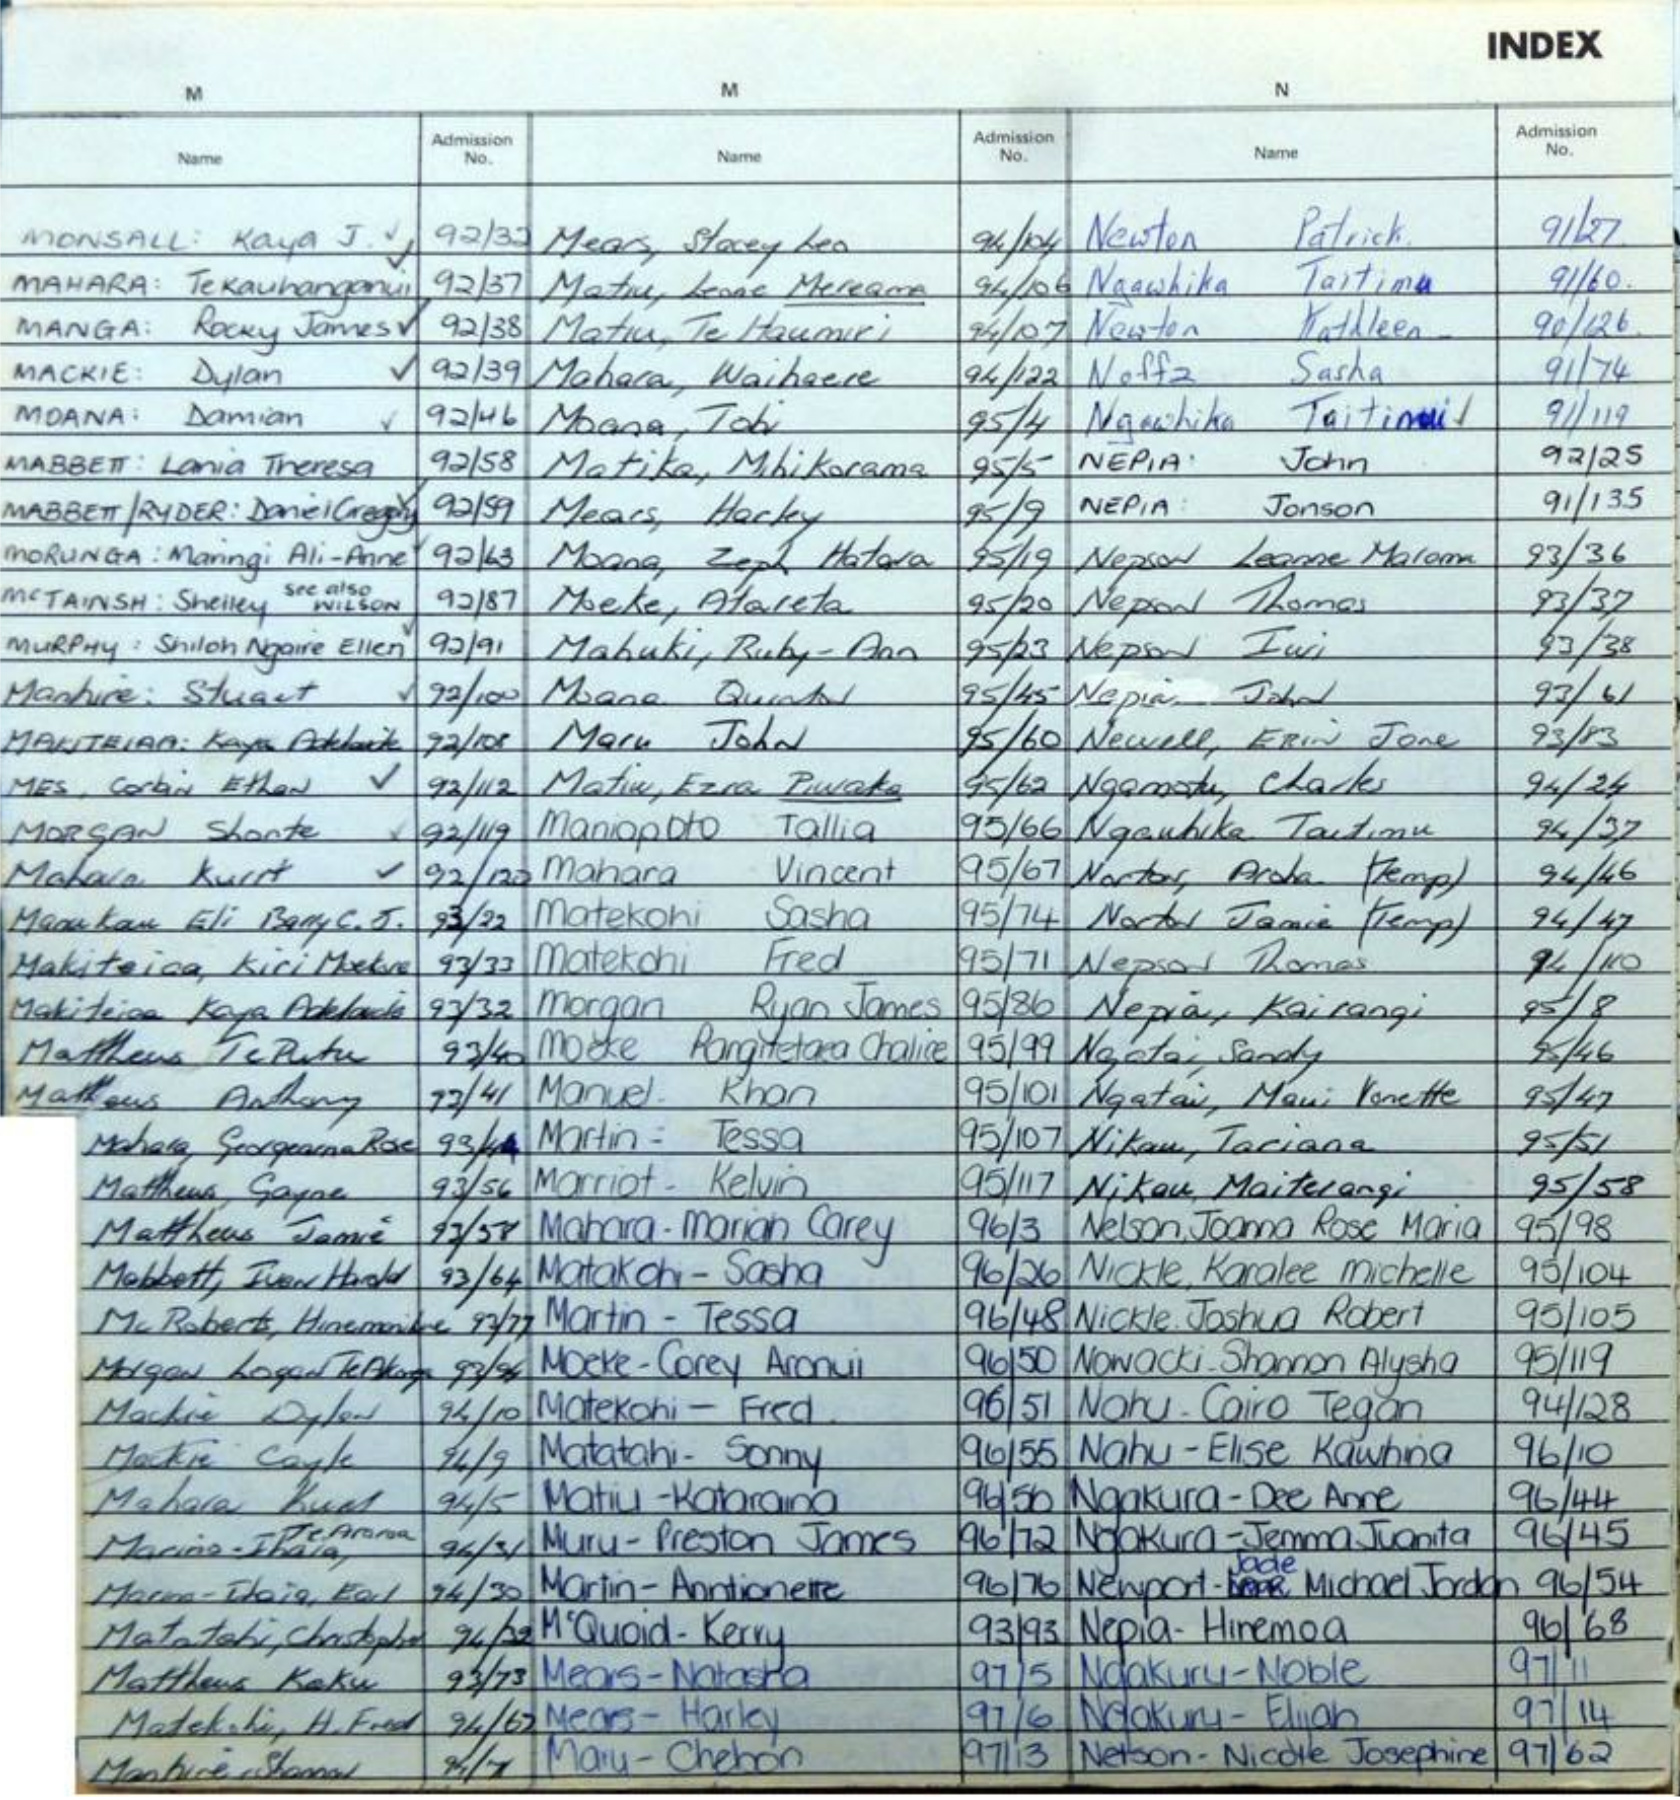 INDEX
M M N
Name Admission No. Name Admission No. Name Admission No.
MONSALL: Kaya J. 92/32 Mears, Stacey Lea 94/104 Newton Patrick 91/27
MAHARA: Tekauhanganui 92/37 Matiu, Leone Mereama 94/106 Ngawhika Taitimu 91/60.
MANGA: Rocky James 92/38 Matiu, Te Haumiri 94/107 Newton Kathleen 90/126
MACKIE: Dylan 92/39 Mahara, Waihaere 94/122 Sasha 91/74
MOANA: Damian 92/46 Moana, Tobi 95/4 Ngawhika 91/119
MABBETT: Lania Theresa 92/58 Matika, Mihikorama 95/5 NEPIA: John 92/25
MABBETT/RYDER: Daniel Gregory 92/59 Mears, Harley 95/9 NEPIA: Jonson 91/135
MORUNGA: Maringi Ali-Anne 92/63 Moana, Zeph Hatara 95/19 Nepson Leanne Marama 93/36
McTAINSH: Shelley see also WILSON 92/87 Moeke, Atareta 95/20 Nepson Thomas 93/37
MURPHY: Shiloh Ngaire Ellen 92/91 Mahuki, Ruby-Ann 95/23 Nepson Iwi 93/38
Manhire: Stuart 92/100 Moana Quinton 95/45 Nepia John 93/61
MAKITEIAA: Kaya Adelaide 92/108 Maru John 95/60 Newell, ERIN Jane 93/83
MES, Corbin Ethan 92/112 Matiu, Ezra Piwaka 95/62 Ngamotu, Charles 94/24
MORGAN Shonte 92/119 Maniapoto Tallia 95/66 Ngawhika Taitimu 94/37
Mahara Kurt 92/122 Mahara Vincent 95/67 Norton, Aroha (Temp) 94/46
Manukau Eli Barry C. J. 93/22 Matekohi Sasha 95/74 Norton Jamie (Temp) 94/47
Makiteiaa, Kiri 93/33 Matekohi Fred 95/71 Nepson Thomas 94/110
Makiteiaa Kaya Adelaide 93/32 Morgan Ryan James 95/86 Nepia, Kairangi 95/8
Matthews Te Putu 93/40 Moeke Rangitetaea Chalice 95/99 Ngatai, Sandy 95/46
Matthews Anthony 93/41 Manuel- Khan 95/101 Ngatai, Maui Vonette 95/47
Mahara, Georgeanna Rose 93/44 Martin- Tessa 95/107 Nikau, Tariana 95/51
Matthews, Gayne 93/56 Marriot- Kelvin 95/117 Nikau, Maiterangi 95/58
Matthews Jamie 93/58 Mahara- Mariah Carey 96/3 Nelson, Joanna Rose Maria 95/98
Mabbett, Ivan Harold 93/64 Matakohi- Sasha 96/26 Nickle, Karalee Michelle 95/104
McRoberts, 93/77 Martin- Tessa 96/48 Nickle. Joshua Robert 95/105
Morgan Logan 93/96 Moeke- Corey Aronui 96/50 Nowacki- Shannon Alysha 95/119
Mackie Dylan 94/10 Matekohi- Fred. 96/51 Nahu- Cairo Tegan 94/128
Mackie Cayle 94/9 Matatahi- Sonny 96/55 Nahu- Elise Kawhina 96/10
Mahara Kurt 94/5 Matiu- Kataraina 96/56 Ngakura- Dee Anne 96/44
Marino-Ihaia, Te Aroroa 94/31 Muru- Preston James 96/72 Ngakura- Jemma Juanita 96/45
Marino-Ihaia, Earl 94/30 Martin- Anntionette 96/76 Newport- Jade Michael Jordan 96/54
Matatahi, Christopher 94/32 McQuoid- Kerry 93/93 Nepia- Hinemoa 96/68
Matthews Kaku 93/73 Mears- Natasha 97/5 Ngakuru- Noble 97/11
Matekohi, H. Fred 94/67 Mears- Harley 97/6 Ngakuru- Elijah 97/14
Manhire, Shannon 94/71 Maru- Chehon 97/13 Nelson- Nicole Josephine 97/62